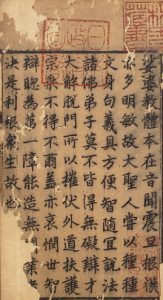 娑婆教體本在音聞震旦根
多明敏故大聖人嘗以種種
文身句義具方便智隨宜說法
諸佛弟子莫不皆得無礙辯才
大解脫門所以摧伏外道扶護
宗乘不得不爾蓋亦哀憫世智
辯聰為第一障能造無間業者
決是利根衆生故也